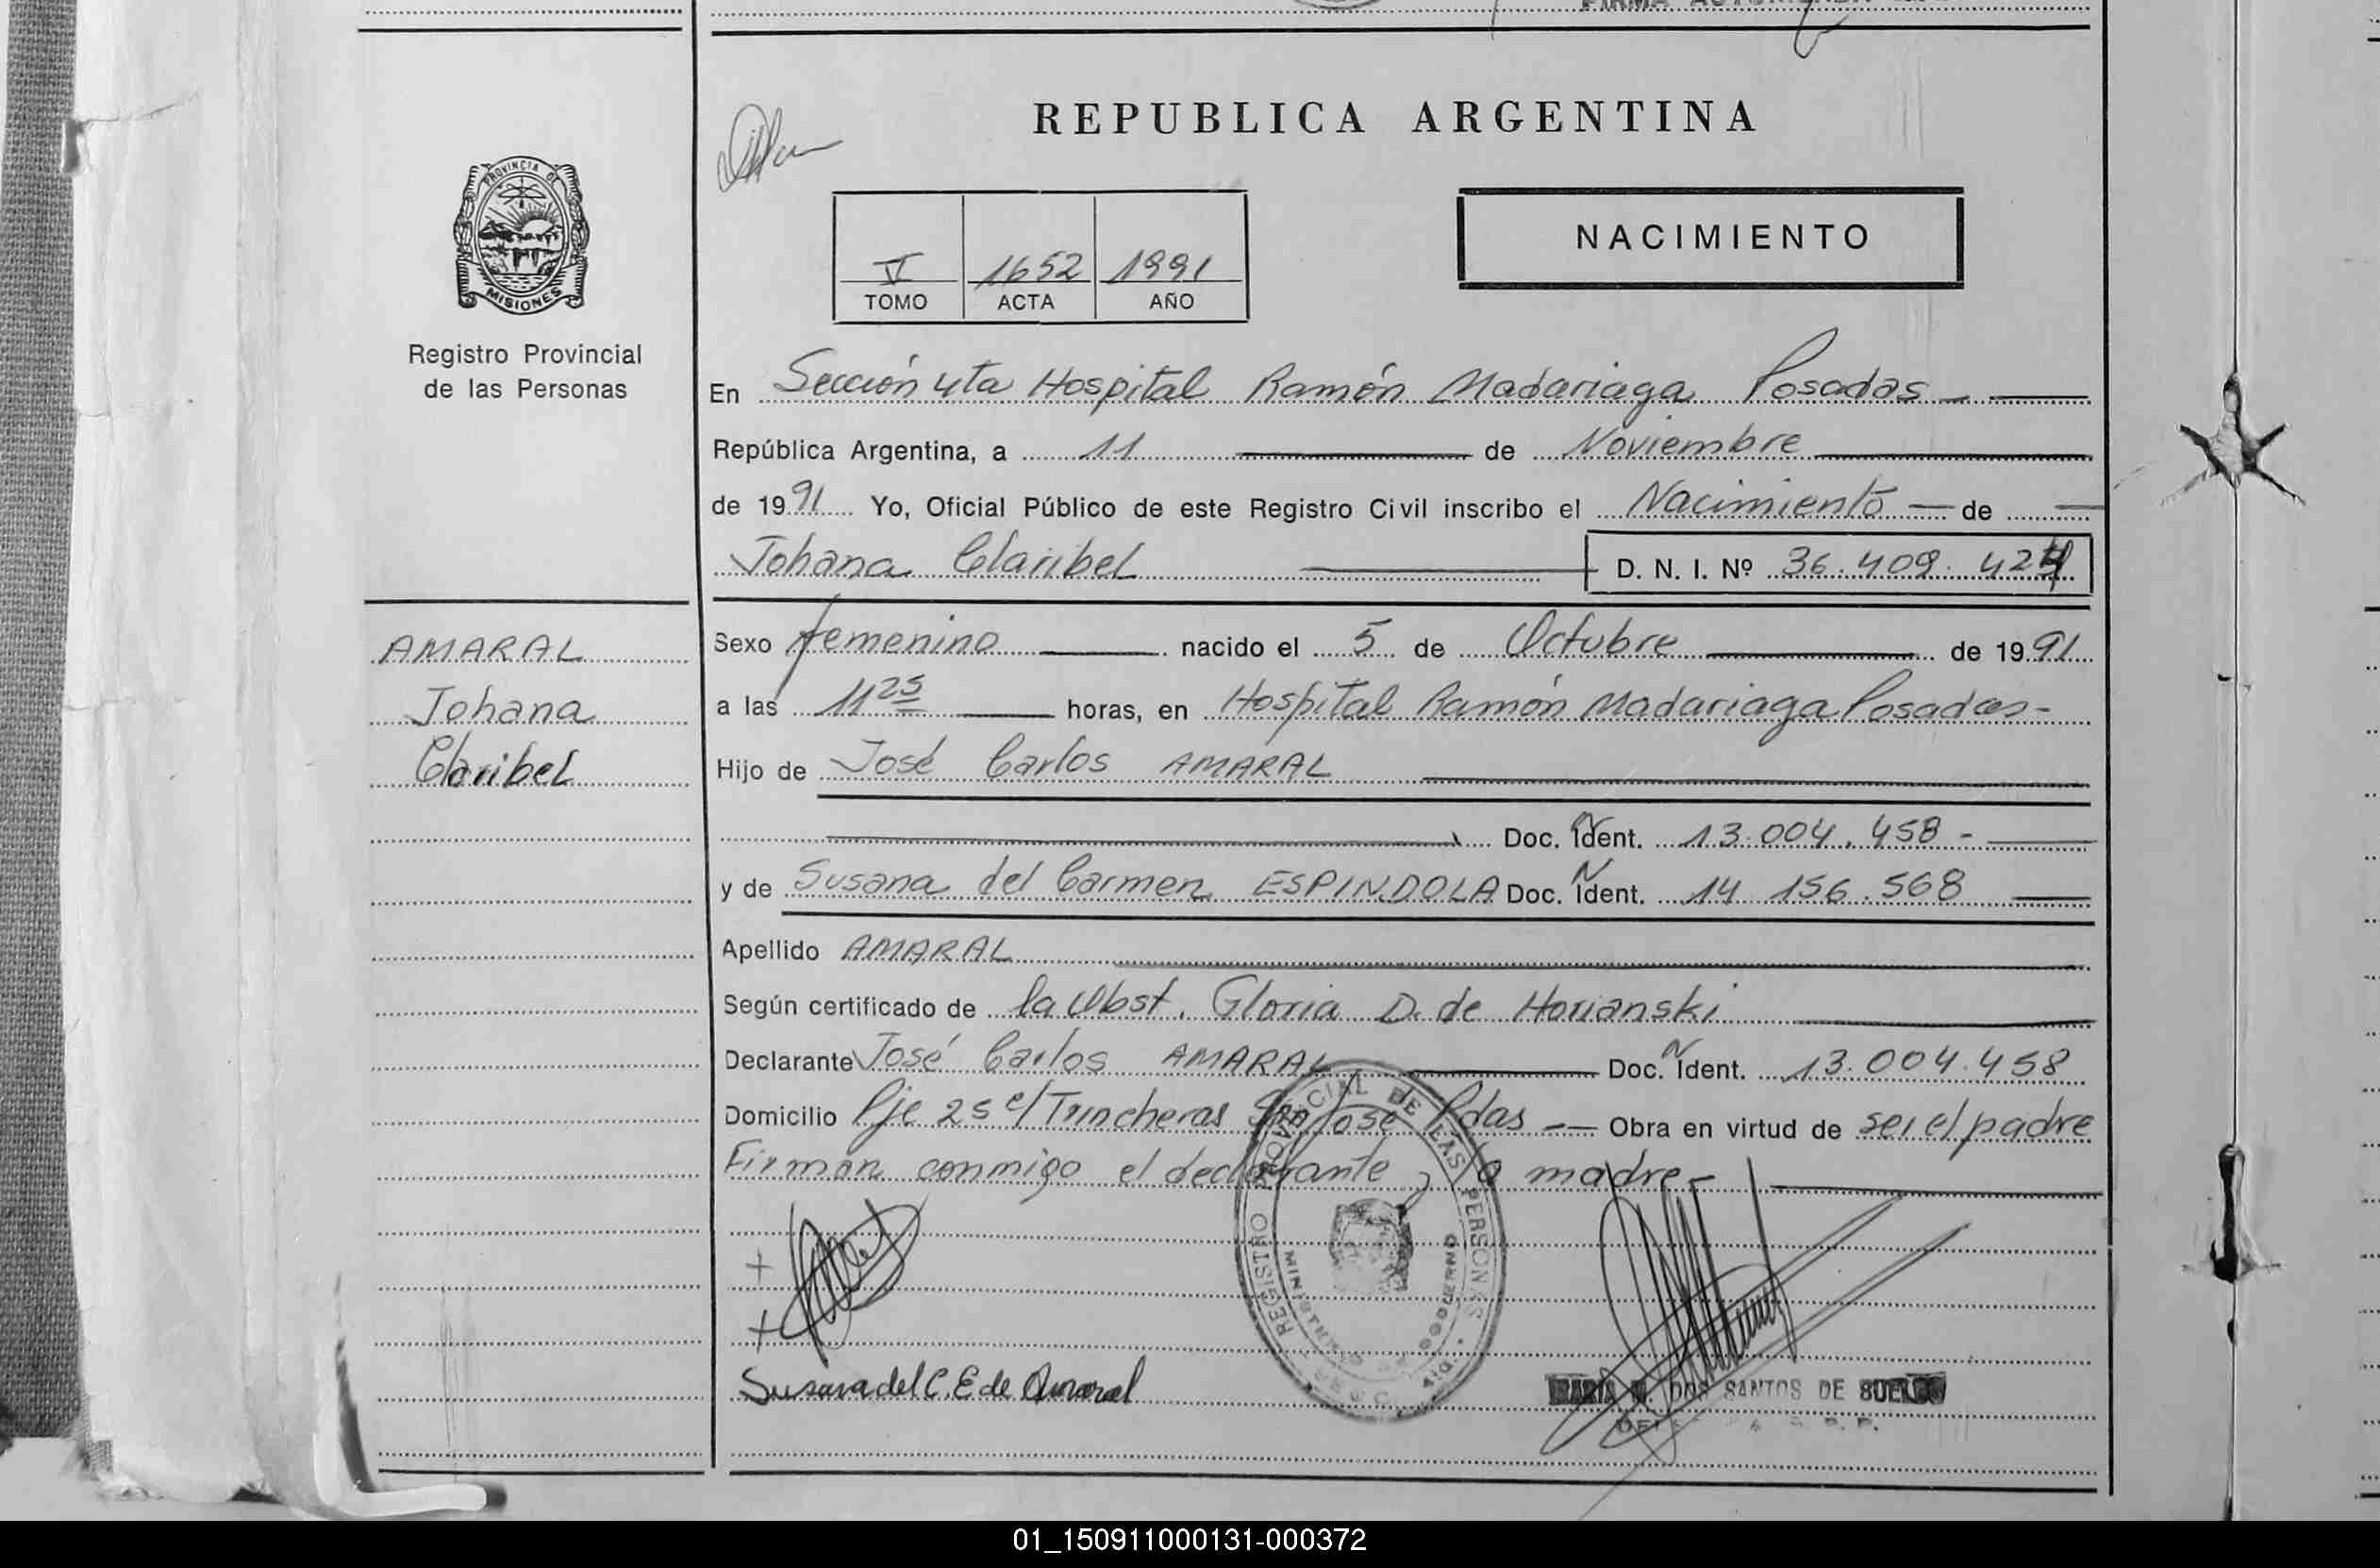 PROVINCIA DE
MISIONES
Registro Provincial
de las Personas
AMARAL
Johana
Claribel
REPUBLICA ARGENTINA
NACIMIENTO
V 1652 1991
TOMO ACTA AÑO
En Sección 4ta Hospital Ramón Madariaga Posadas
República Argentina, a 11 de Noviembre
de 1991 Yo, Oficial Público de este Registro Civil inscribo el Nacimiento de
Johana Claribel D. N. I. Nº 36.409.424
Sexo femenino nacido el 5 de Octubre de 1991
a las 11 25 horas, en Hospital Ramón Madariaga Posadas-
Hijo de José Carlos AMARAL
Doc. Ident. 13.004.458-
y de Susana del Carmen ESPINDOLA Doc. Ident. 14 156.568
Apellido AMARAL
Según certificado de la Obst. Gloria D. de Horianski
Declarante José Carlos AMARAL Doc. Ident. 13.004.458
Domicilio Pje 25 e/ Trincheras San José Pdas -- Obra en virtud de ser el padre
Firman conmigo el declarante y la madre-
REGISTRO PROVINCIAL DE LAS PERSONAS
MINISTERIO DE GOBIERNO
Susana del C. E de Amaral
DOS SANTOS DE
01_150911000131-000372